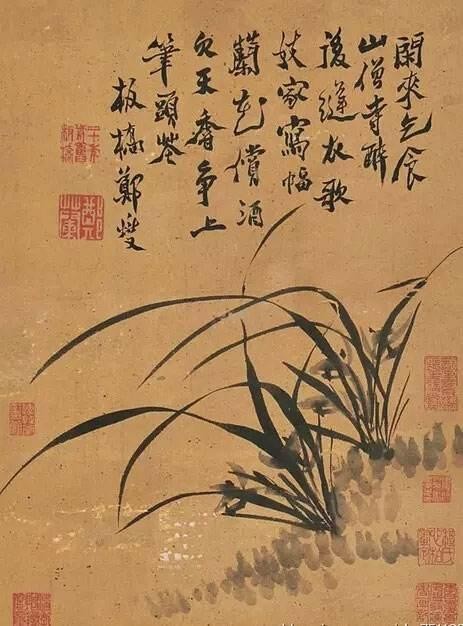 閑來乞食
山僧寺醉
後縫衣歌
妓家寫幅
蘭花償酒
欠天香爭上
筆頭花
板橋鄭燮